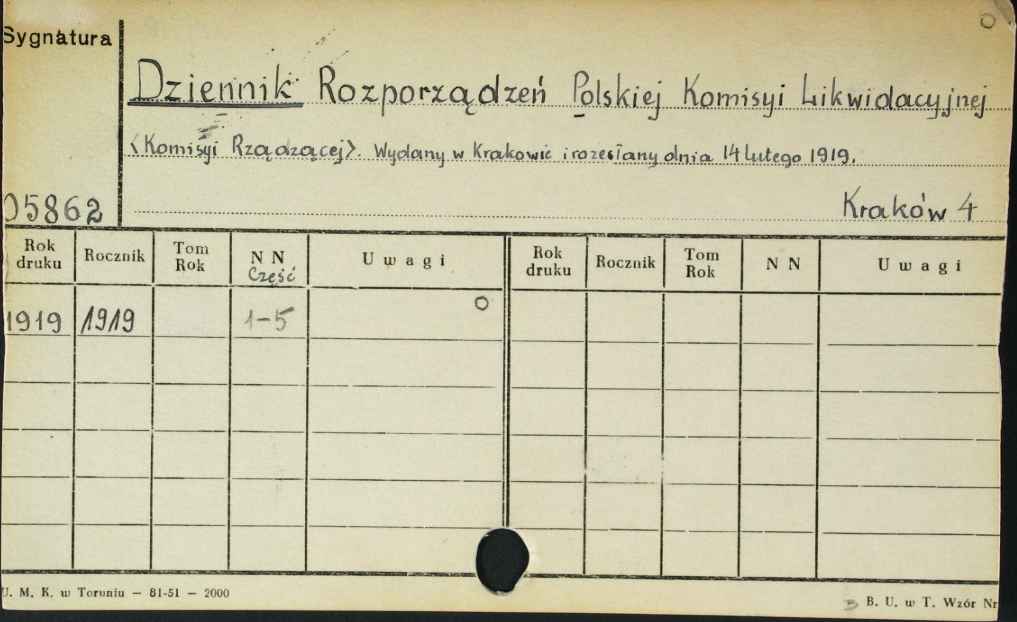 Sygnatura
Dziennik Rozporządzeń Polskiej Komisyi Likwidacyjnej
<Komisyi Rządzącej>. Wydany w Krakowie i rozesłany dnia 14 Lutego 1919.
05862
Kraków 4
Rok druku Rocznik Tom Rok N N Część U w a g i Rok druku Rocznik Tom Rok N N U w a g i
1919 1919 1-5 O
U. M. K. w Toruniu — 81-51 — 2000
B. U. w T. Wzór Nr